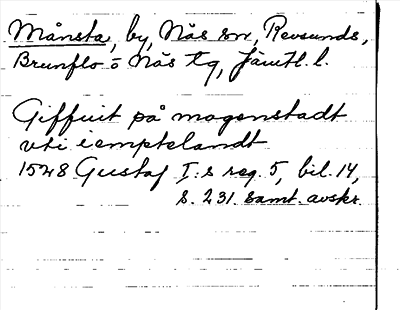 Månsta, by, Näs sn, Revsunds,
Brunflo o Näs tg, Jämtl. l.
Giffuit på mogenstadt
vti iemptelandt
1548 Gustaf I:s reg. 5, bil. 14,
s. 231. samt. avskr.